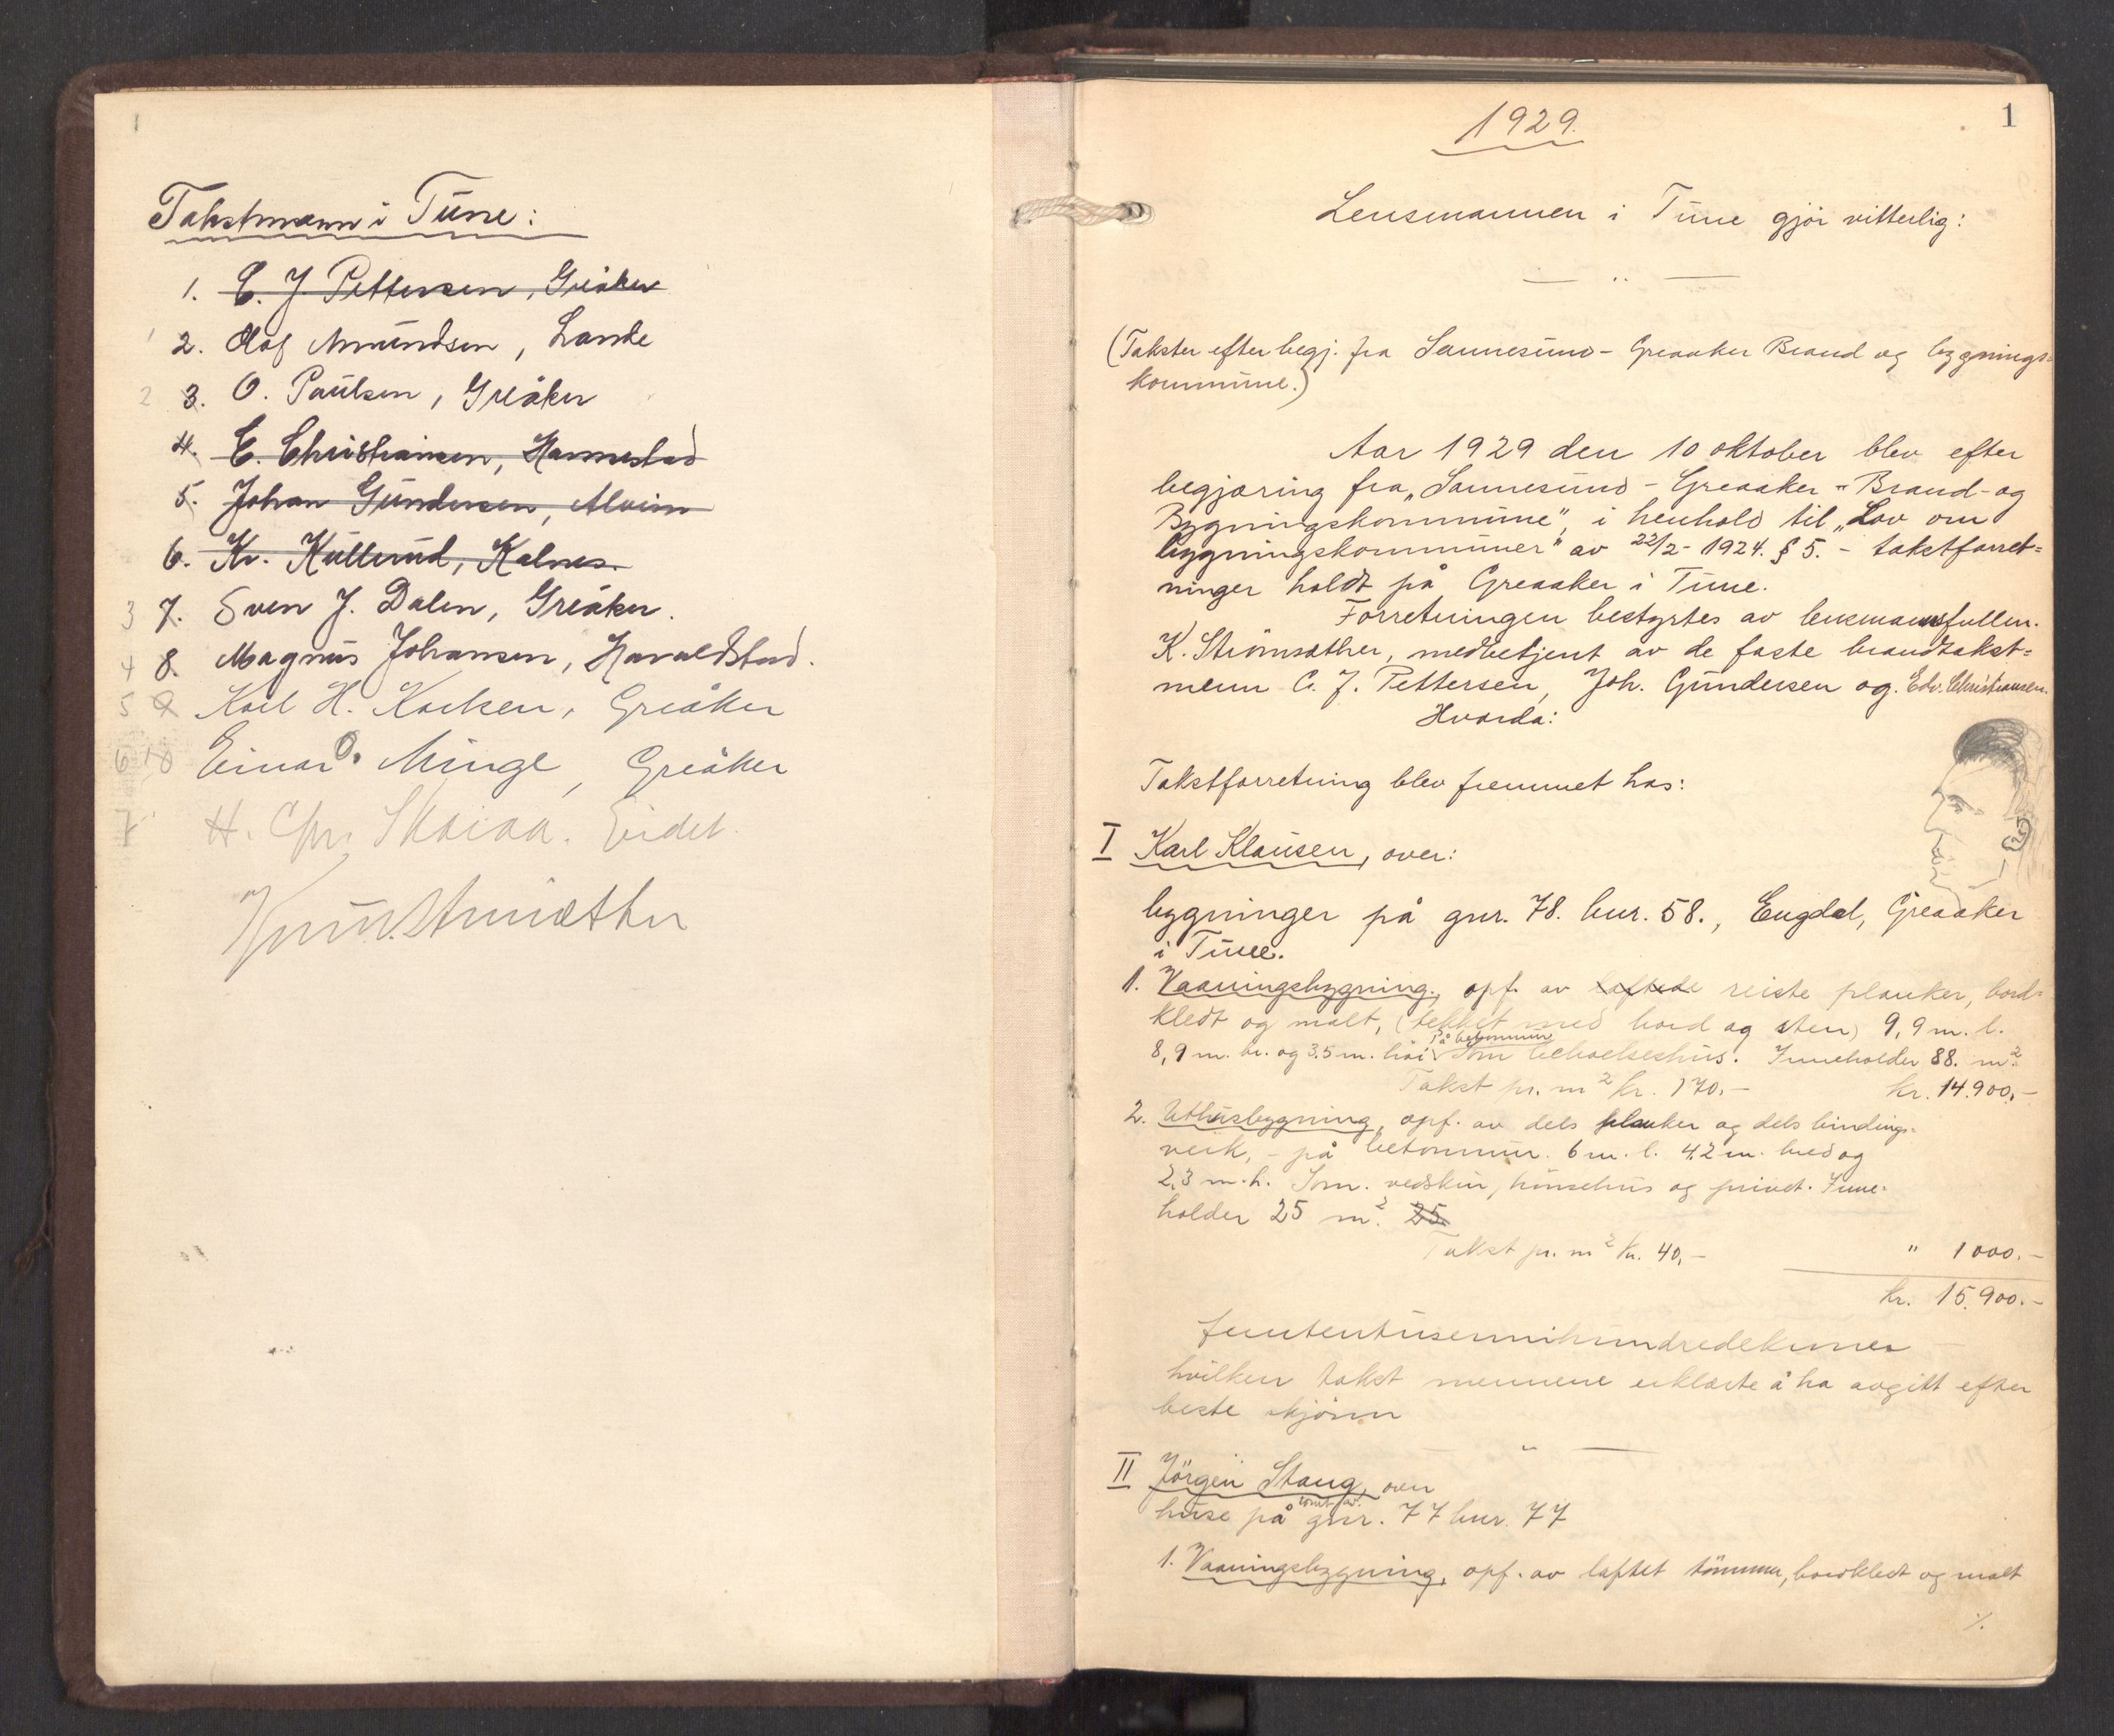 1
Takstmann i Tune:
1. C. J. Pettersen, Greåker
1 2. Olaf Amundsen, Lande
2 3. O. Paulsen, Greåker
4. E. Christiansen, Hannestad
5. Johan Gundersen, Alvim
6. Kr. Kullerud, Kalnes.
3 7. Sven J. Dalen, Greåker.
4 8. Magnus Johansen, Haraldstad.
5 9 Karl H. Karlsen, Greåker
6 10 Einar O. Minge, Greåker
7 H. Chr. Eidet.
1
1929.
Lensmannen i Tune gjör vitterlig:
(Takster efter begj. fra Sannesund - Greaaker Brand og bygnings=
kommune.)
Aar 1929 den 10 oktober blev efter
begjæring fra „Sannesund - Greaaker - Brand- og
Bygningskommune", i henhold til „Lov om
bygningskommuner" av 22/2- 1924. § 5. - takstforret=
ninger holdt på Greaaker i Tune.
Forretningen bestyrtes av lensmannsfullm.
K. Strömsæther, medbetjent av de faste brandtakst=
menn C. J. Pettersen, Joh. Gundersen og. Edv. Christiansen.
Hvorda:
Takstforretning blev fremmet hos:
I Karl Klausen, over:
bygninger på gnr. 78. bnr. 58., Engdal, Greaaker
i Tune.
1. Vaaningsbygning, opf. av laftede reiste planker, bord=
kledt og malt, (tekket med bord og sten) 9,9 m. l.
på betonmur
8,9 m. br. og 3.5 m. höi Som beboelseshus. Inneholder 88. m²
Takst pr. m² kr. 170,- kr. 14.900,-
2. Uthusbygning, opf. av dels planker og dels bindings=
verk, - på betonmur. 6 m. l. 4,2 m. bred og
2,3 m. h. Som. vedskur, hönsehus og privet. Inne-
holder 25 m². 25
Takst pr. m² kr. 40,- " 1000.-
kr. 15.900.-
femtentusennihundredekroner
hvilken takst mennene erklærte å ha avgitt efter
beste skjönn
II Jörgen Stang, over
tomt av.
huse på gnr. 77 bnr. 77
1. Vaaningsbygning, opf. av laftet tömmer, bordkledt og malt
./.